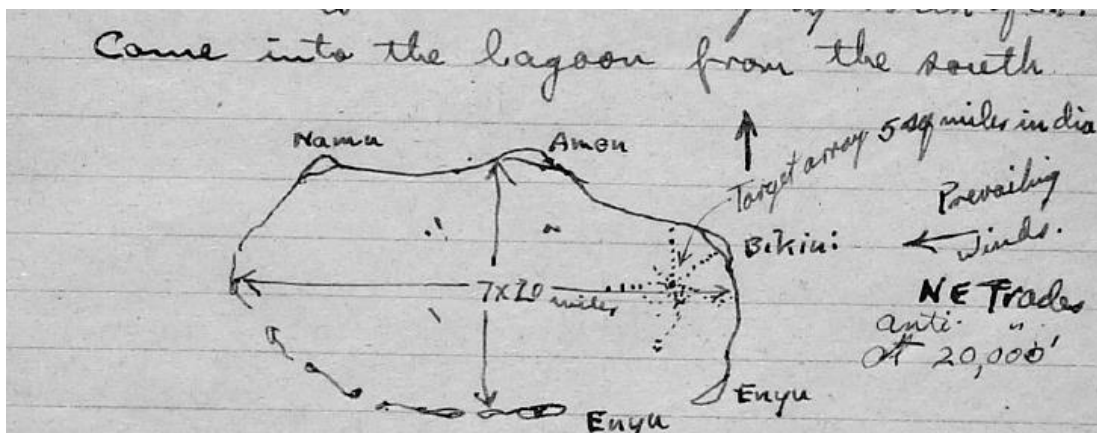 Come into the lagoon from the south
Namu
Amen
Target array 5 sq miles in dia
Prevailing
Winds.
Bikini
7x20 miles
NE Trades
anti. "
at 20,000'
Enyu
Enyu